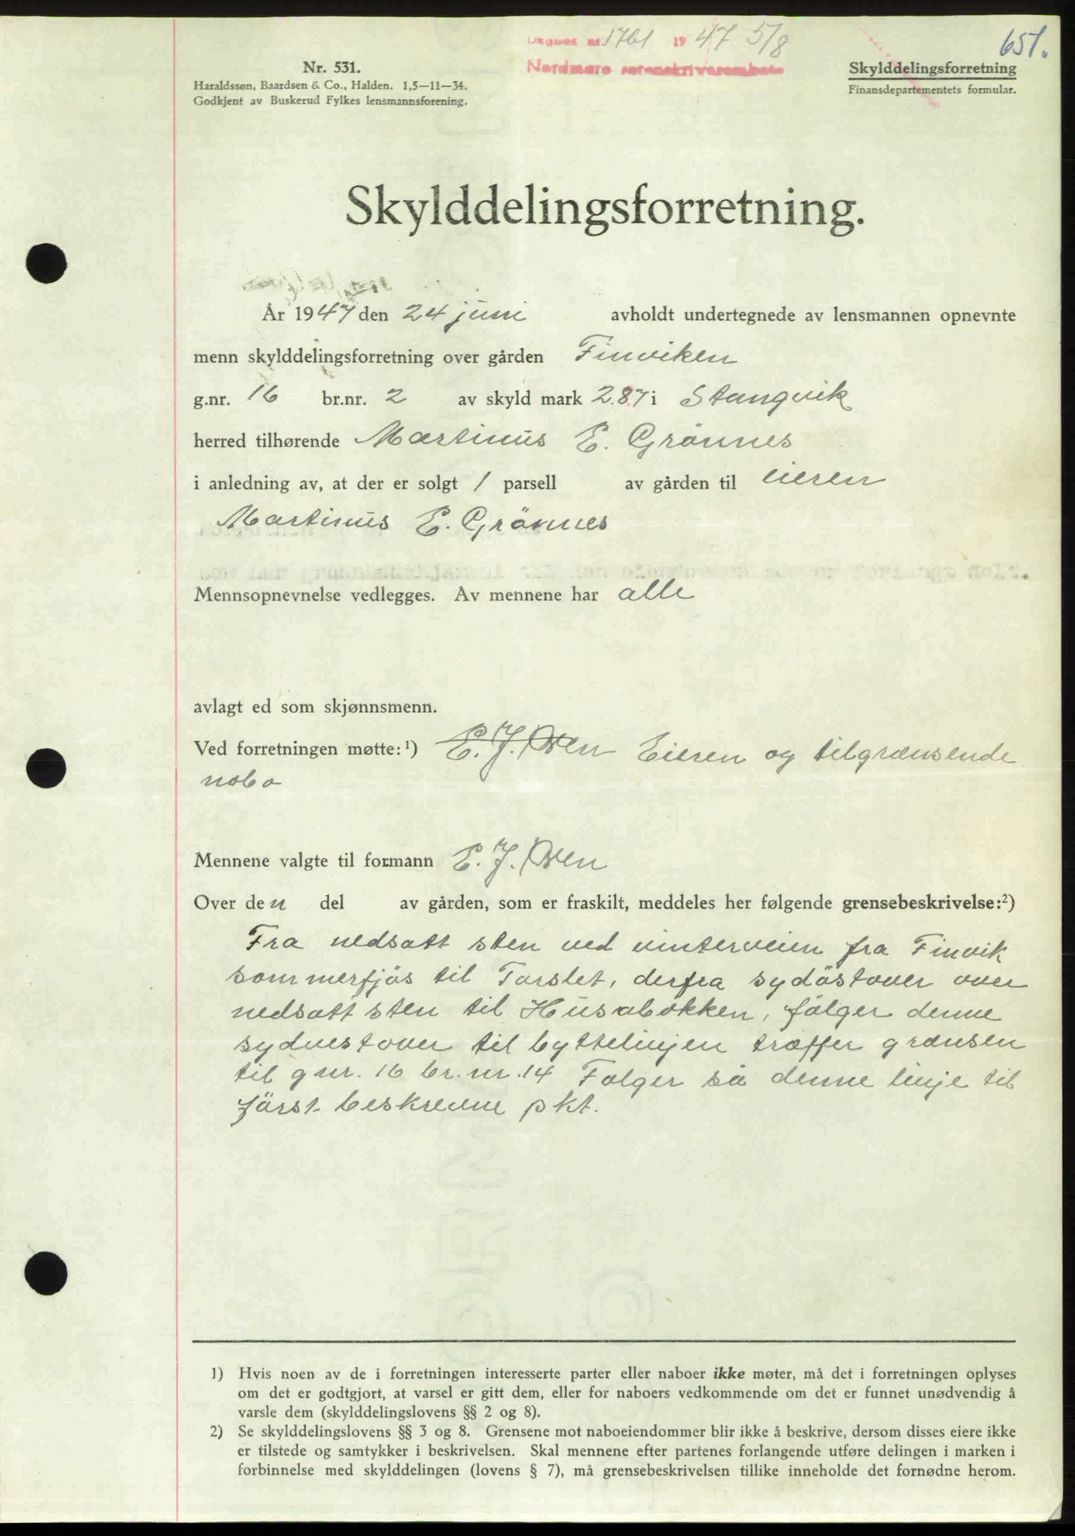 Dagbok nr. 1761 1947 5/8
651.
Nordmøre sorenskriverembete
Nr. 531.
Haraldssøn, Baardsen & Co., Halden. 1,5—11—34.
Godkjent av Buskerud Fylkes lensmannsforening.
Skylddelingsforretning
Finansdepartementets formular.
Skylddelingsforretning.
År 1947 den 24 juni avholdt undertegnede av lensmannen opnevnte
menn skylddelingsforretning over gården Finviken
g.nr. 16 br.nr. 2 av skyld mark 2.87 i Stangvik
herred tilhørende Martinus E. Grönnes
i anledning av, at der er solgt 1 parsell av gården til eieren
Martinus E. Grönnes
Mennsopnevnelse vedlegges. Av mennene har alle
avlagt ed som skjønnsmenn.
Ved forretningen møtte:¹) E. J. Øven Eieren og tilgrænsende
nabo
Mennene valgte til formann E. J. Øven
Over den del av gården, som er fraskilt, meddeles her følgende grensebeskrivelse:²)
Fra nedsatt sten ved vinterveien fra Finvik
sommerfjös til Torslet, derfra sydöstover over
nedsatt sten til Husabekken, fölger denne
sydvestover til byttelinjen træffer grænsen
til gnr. 16 br.nr. 14 Fölger så denne linje til
först beskrevne pkt.
1) Hvis noen av de i forretningen interesserte parter eller naboer ikke møter, må det i forretningen oplyses
om det er godtgjort, at varsel er gitt dem, eller for naboers vedkommende om det er funnet unødvendig å
varsle dem (skylddelingslovens §§ 2 og 8).
2) Se skylddelingslovens §§ 3 og 8. Grensene mot naboeiendommer blir ikke å beskrive, dersom disses eiere ikke
er tilstede og samtykker i beskrivelsen. Skal mennene efter partenes forlangende utføre delingen i marken i
forbinnelse med skylddelingen (lovens § 7), må grensebeskrivelsen tillike inneholde det fornødne herom.